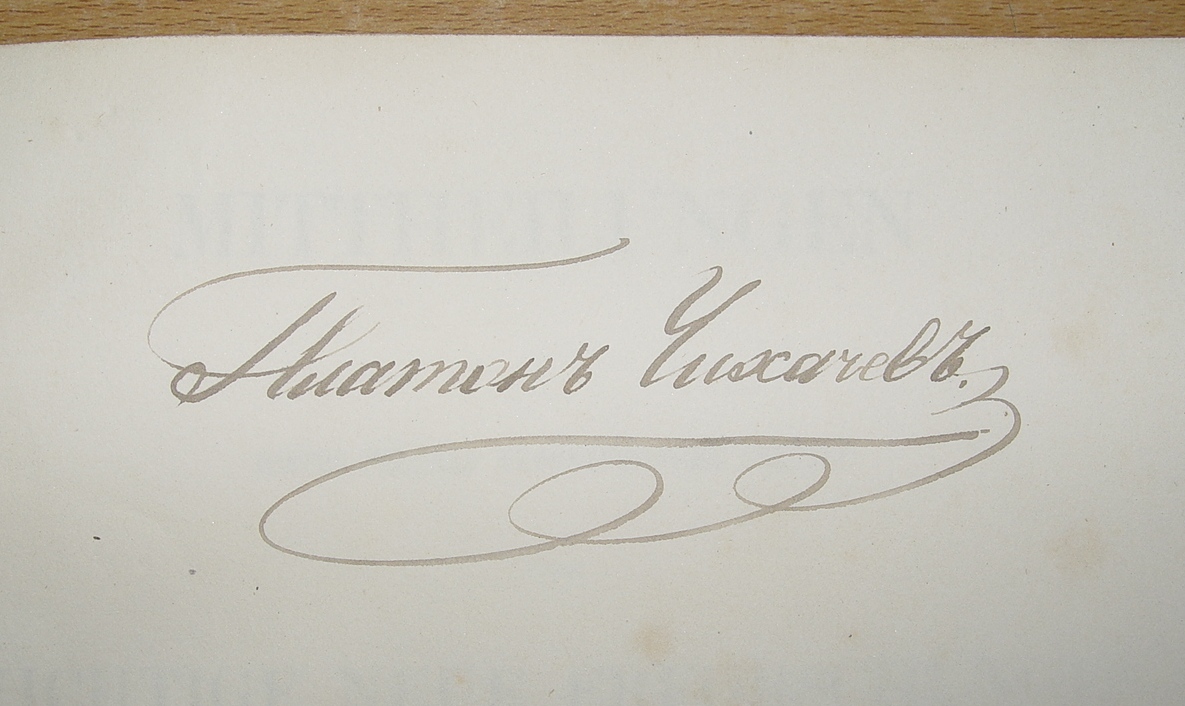 Платонъ Чихачевъ.